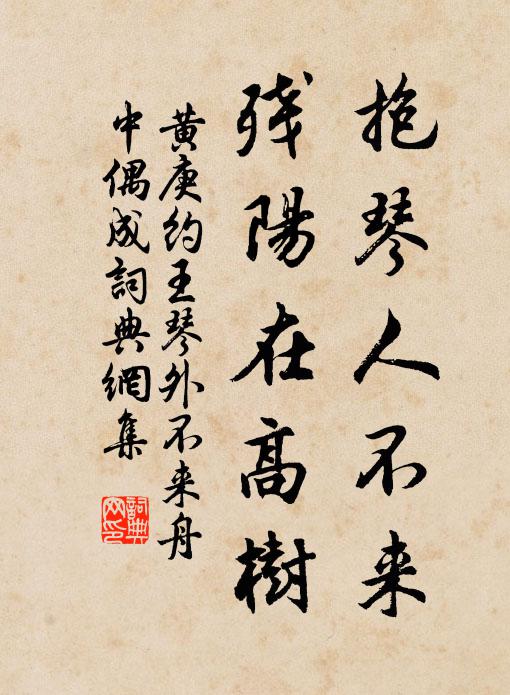 抱琴人不来
残陽在高樹
黄庚约王琴外不来舟
中偶成詞典網集
詞典
网印